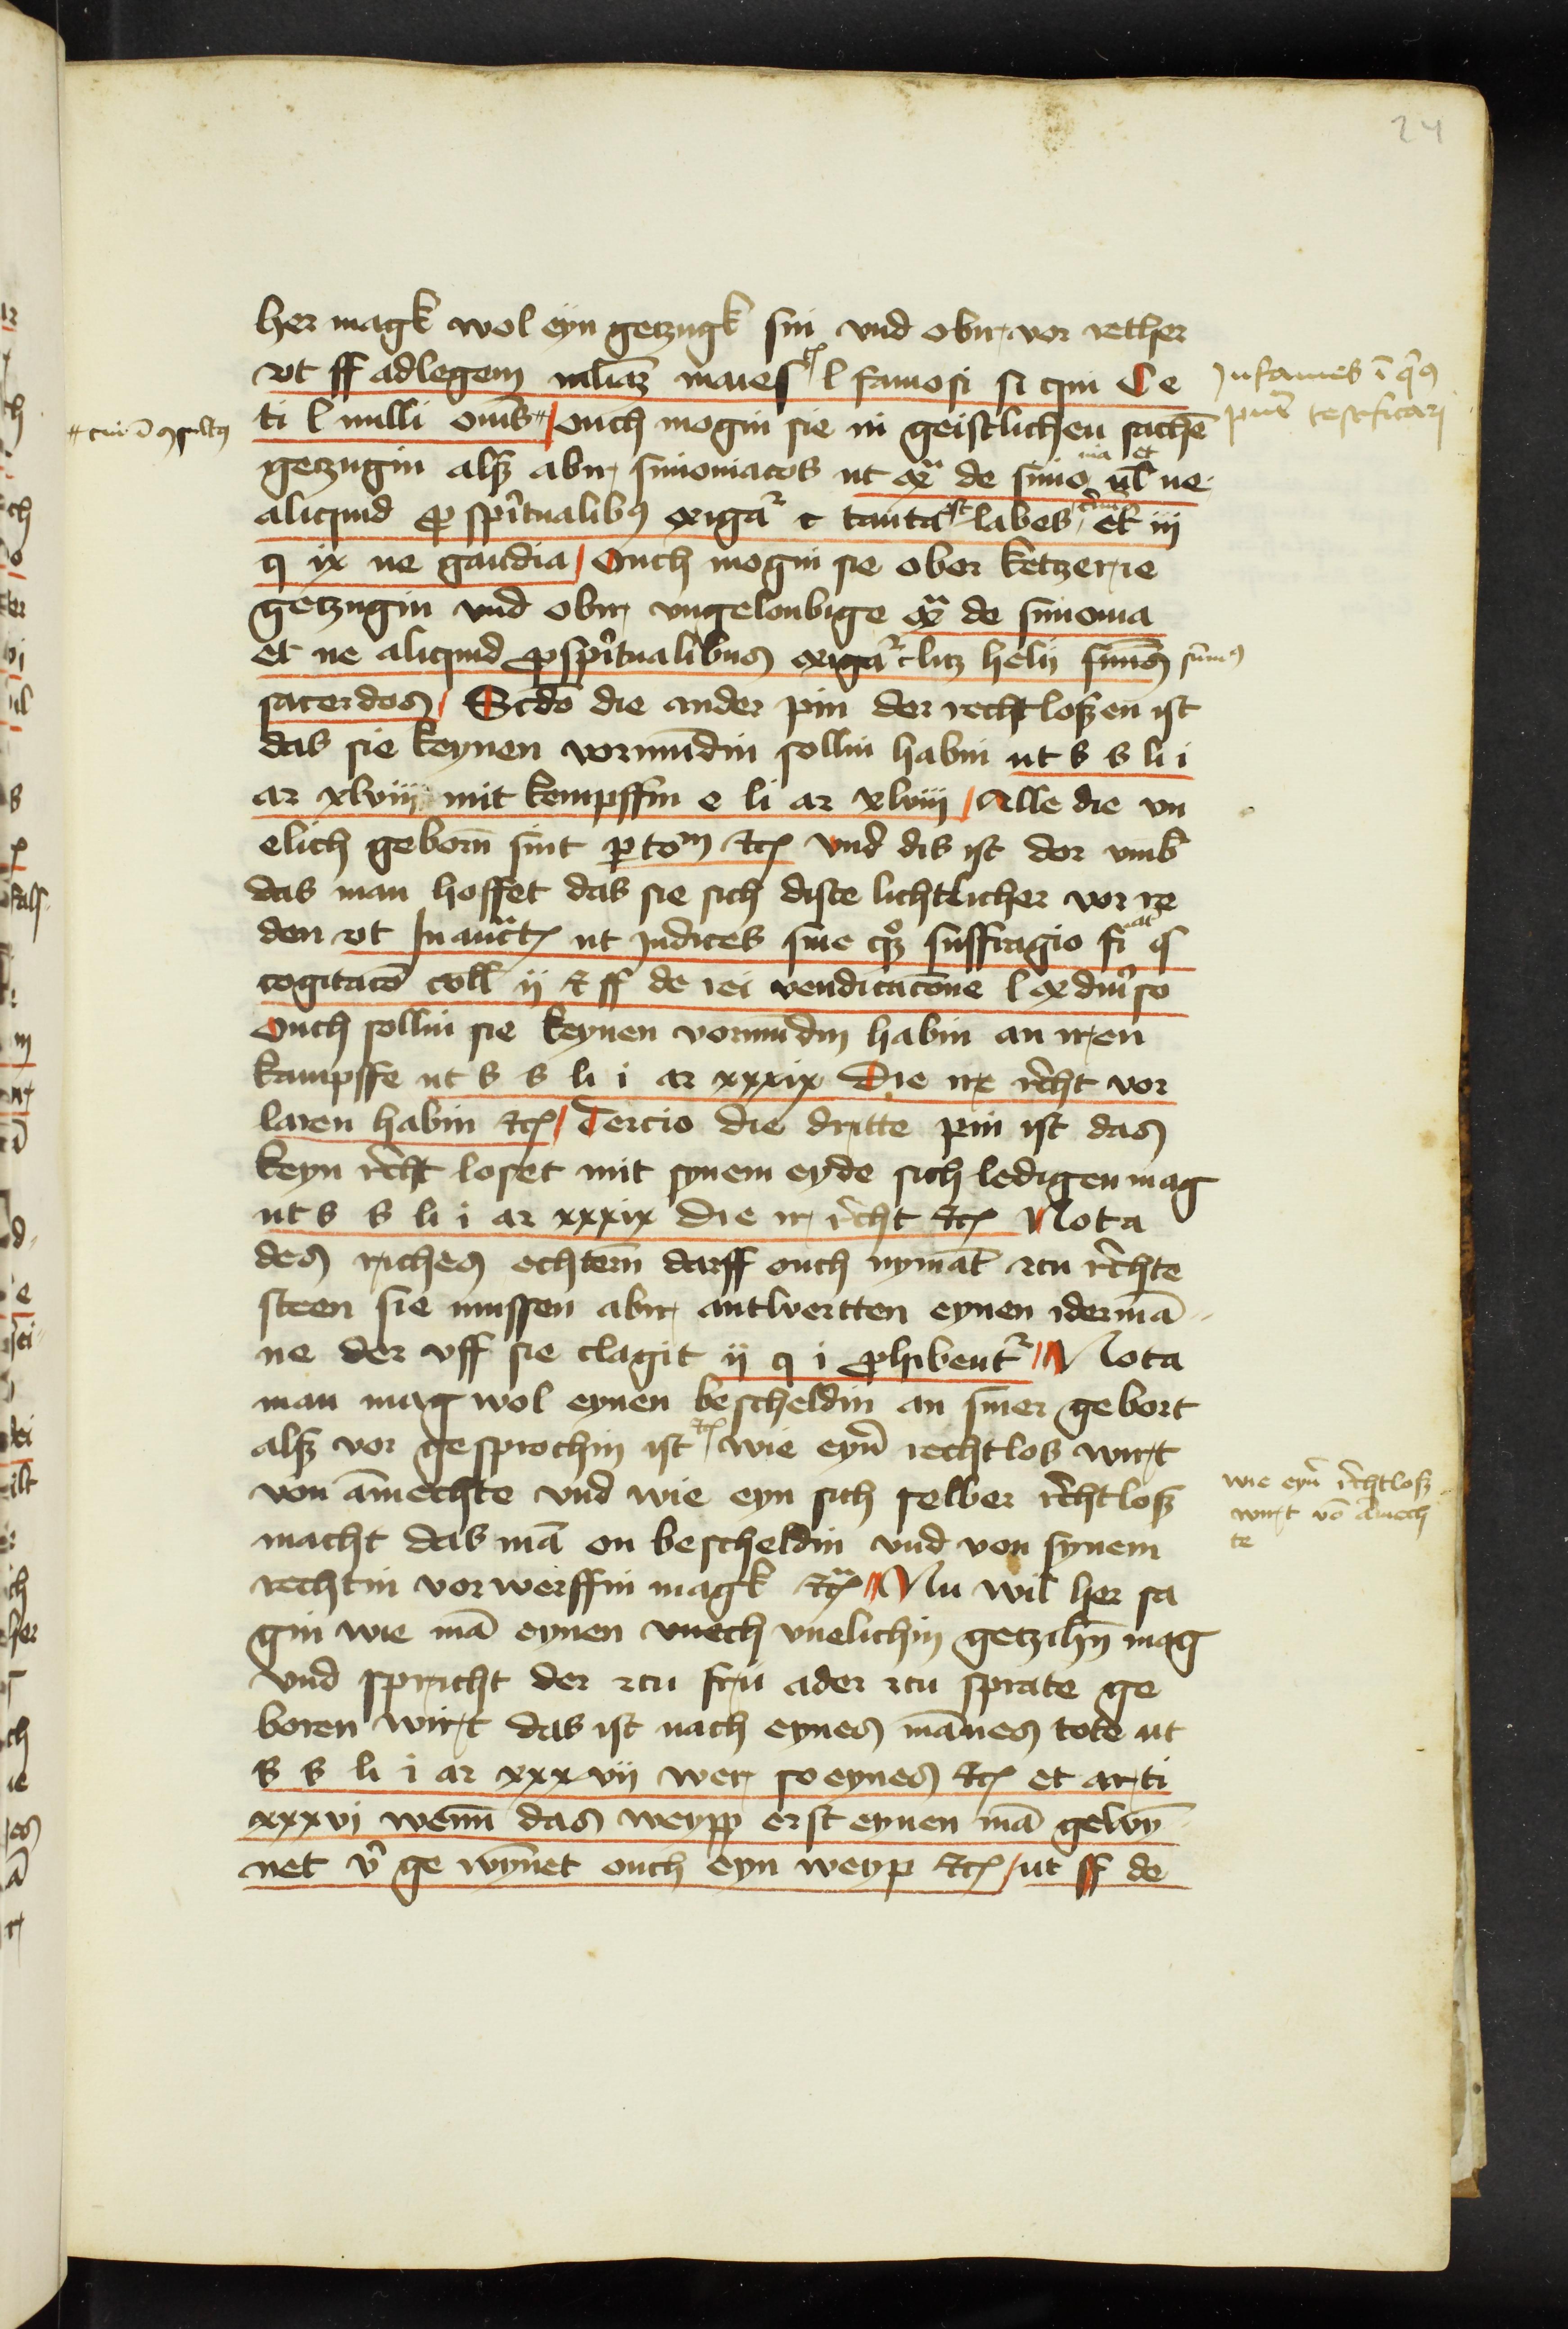 24
her magk wol eyn getzugk sin vnd obir vor rether
vt ff ad legem iuliaʒ maies l famosi si qui C e
ti l nulli om̄s ouch mogin sie in geistlichen sachē
getzugin alsz abir simoniacos ut ex̄ de simo nia et ul ne
aliquid p spiritualibꝰ exigat̄ c tanta est labes et iii
q ix ne gaudia Ouch mogin sie obor ketzer ie
getzugin vnd obir vngeloubige ex̄ de simonia
et ne aliquid p spiritualibus exigat̄ c licʒ helii sum̄s
sacerdos Scdo die ander pin der rechtloszen ist
das sie keynen vormundin sollin habin ut s s li i
ar xlviii mit kempffin e li ar xlviii Alle die vn
elich geborn̄ sint p tom̄ etc̄ vnd dis ist dor vmb
das man hoffet das sie sich diste lichtlicher vor re
den vt In aut̄ ut Judices sine quoʒ suffragio fiat
cogitacō coll ii et ff de rei vendicacōne l ex diuso
Ouch sollin sie keynen vormundin habin an iren
kampffe ut s s li i ar xxxix Die ire r̄cht vor
laren habin etc̄ Tercio die dritte pin ist das
keyn r̄cht loset mit synem eyde sich ledigen mag
ut s s li i ar xxxix die ir r̄cht etc̄ Nota
des riches echtern̄ darff ouch nymāt zcu r̄chte
steen sie mussen abir antwertten eynen idermā
ne der vff sie clagit ii q i phibent̄ Nota
man mag wol eynen bescheldin an siner gebort
alsz vor gesprochin ist etc̄ wie eyn̄ rechtlos wirt
von āmechte vnd wie eyn sich selber r̄chtlosz
macht das mā on bescheldin vnd von synem
rechtin vorwerffin magk etc̄ Nu wil her sa
gin wie mā eynen vnech vnelichin getzihn̄ mag
vnd spricht der zcu fru ader zcu sprate ge
boren wirt das ist nach eynes mānes tode ut
s s li i ar xxxvii wer so eynes etc̄ et arti
xxxvi wenn̄ das weypp erst eynen mā gewȳ
net v̄ ge wȳnet ouch eyn weyp etc̄ ut ff de
Infames ī qbꝰ
pn̄t testficari
sūmꝰ
wie eyn̄ r̄chtlosz
wirt vō āmech
te